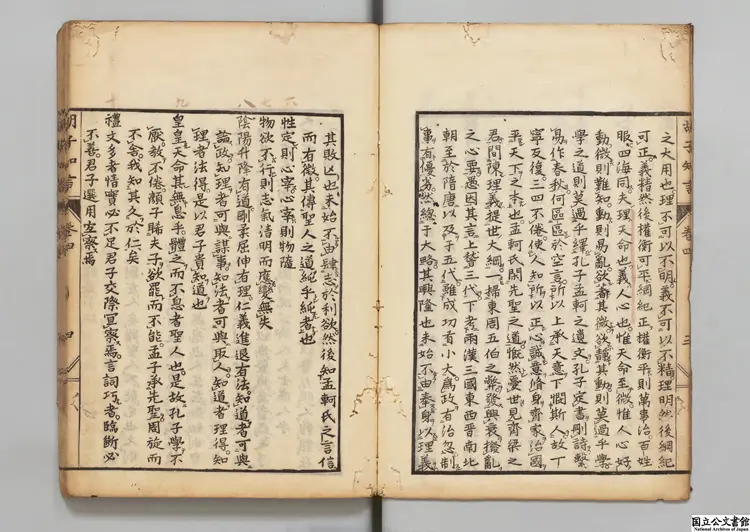 之大用也理不可以不明義不可以不精理明然後綱紀
可正義精然後權衡可平綱紀正權衡平則萬事治百姓
服四海同夫理天命也義人心也惟天命至微惟人心好
動微則難知動則易亂欲著其微欲靜其動則莫過乎學
學之道則莫過乎繹孔子孟軻之遺文孔子定書刪詩繫
易作春秋何區區於空言所以上承天意下憫斯人故丁
寧反復三四不倦使人知所以正心誠意脩身齊家治國
平天下之本也孟軻氏閑先聖之道慨然憂世見齊梁之
君間陳理義提世大綱一掃東周五伯之弊發興衰撥亂
之心要愚因其言上暨三代下考兩漢三國東西晋南北
朝至於隋唐以及于五代雖成功有小大為政有治忽制
事有優劣然總于大略其興隆也未始不由奉身以理義
其敗亡也未始不由肆志於利欲然後知孟軻氏之言信
而有徵其傳聖人之道純乎純者也
性定則心宰心宰則物隨
物欲不行則志氣清明而應變無失
陰陽升降有道剛柔屈伸有理仁義進退有法知道者可與
論政知理者可與謀事知法者可與取人知道者理得知
理者法得是以君子貴知道也
皇皇天命其無息乎體之而不息者聖人也是故孔子學不
厭教不倦顏子睎夫子欲罷而不能孟子承先聖周旋而
不舍我知其久於仁矣
禮文多者情實必不足君子交際宜察焉言詞巧者臨斷必
不善君子選用宜察焉
胡子知言
卷四
三
胡子知言
卷四
四
国立公文書館
National Archives of Japan